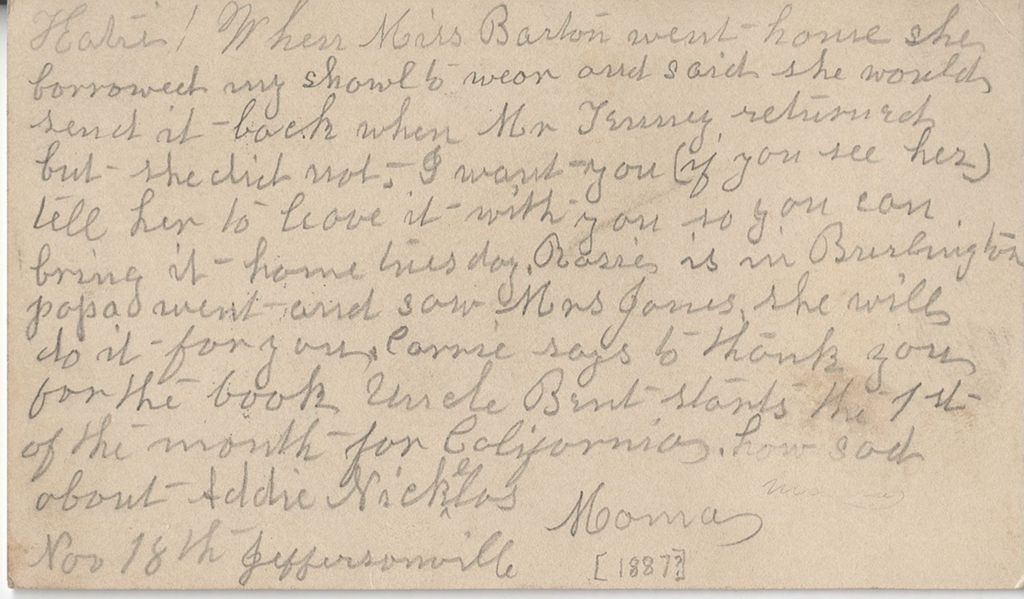 Hatie! When Miss Barton went home she
borrowed my showl to wear and said she would
send it back when Mr Tenney returned
but she did not, I want you (if you see her)
tell her to leave it with you so you can
bring it home tuesday, Rosie is in Burlington
papa went and saw Mrs Jones, she will
do it for you, Carrie says to thank you
for the book Uncle Bent starts the 1st
of the month for California. how sad
about Addie Nickelas
Moma
Nov 18th Jeffersonville
[1887?]